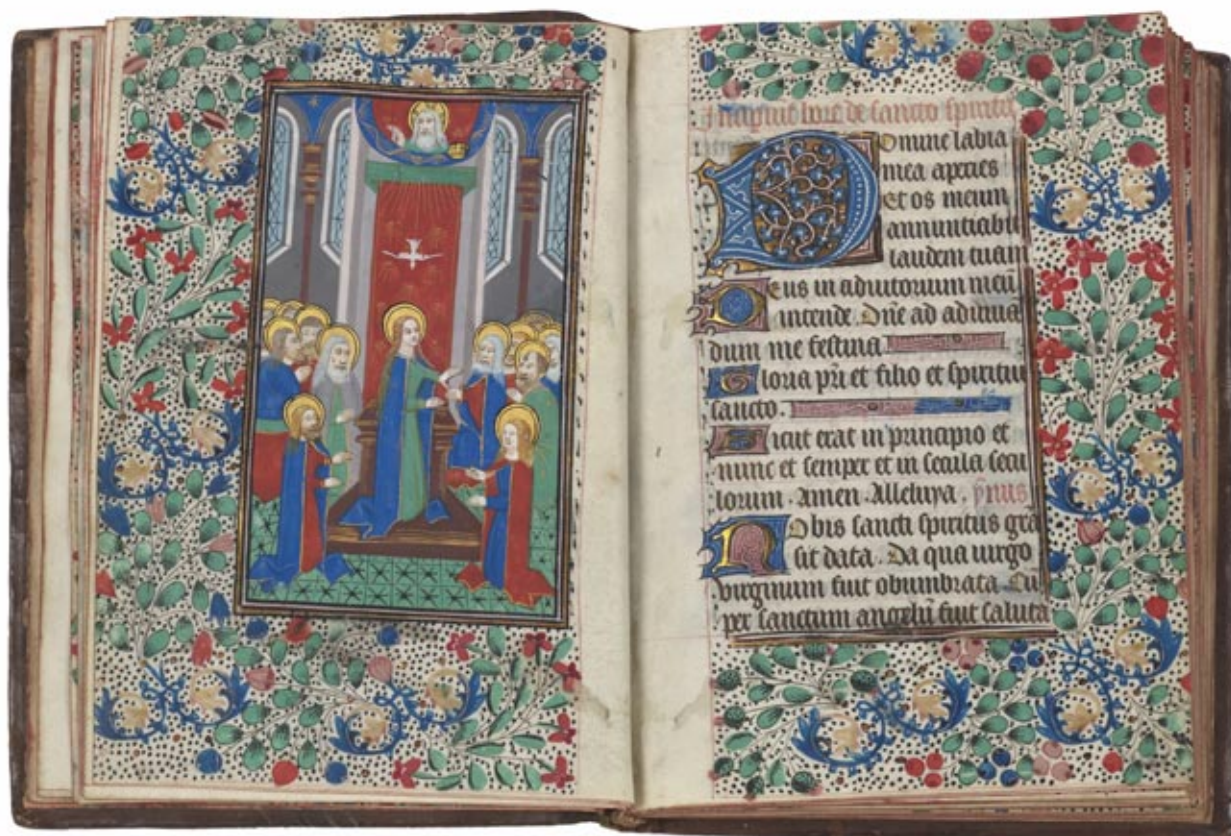 Incipiunt hore de sancto spiritu
Domine labia
mea aperies
et os meum
annunciabit
laudem tuam
Deus in adiutorium meũ
intende. Dñe ad adiuuã
dum me festina
Gloria pr̃i et filio et spiritui
sancto.
Sicut erat in principio et
nunc et semper et in secula secu
lorum. Amen. Alleluya. ỹnus
Nobis sancti spiritus gr̃a
sit data. Da qua uirgo
virginum fuit obumbrata. Cũ
per sanctum angelũ fuit saluta